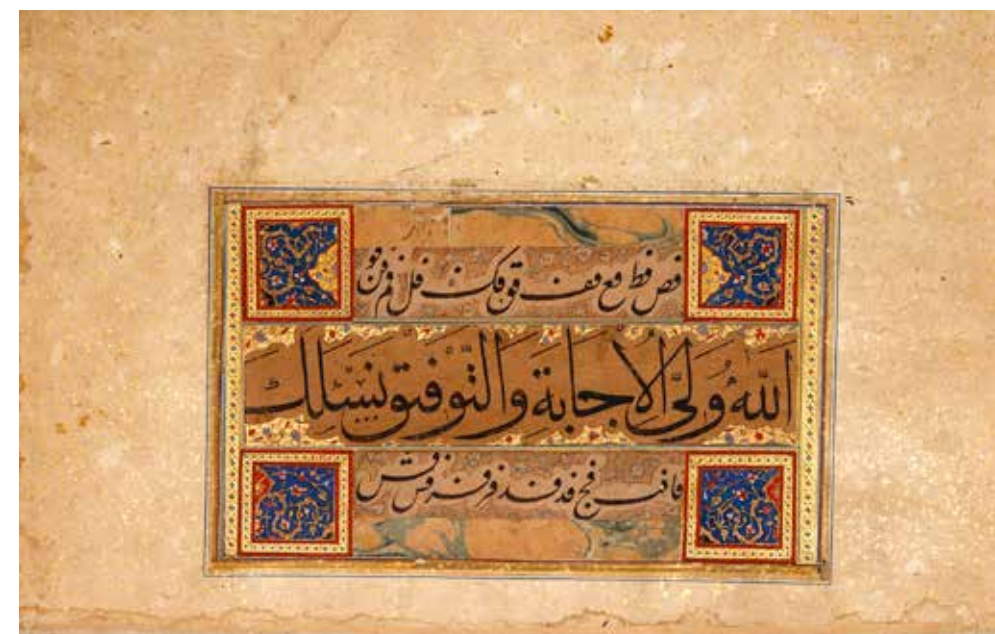 فص فط فع فف فق فک فل فم فن فو
اَللّٰهُ وَلِیُّ الْاِجَابَةِ وَالتَّوْفِیْقِ نَسْئَلُكَ
فا فب فج فد فذ فر فز فس فش